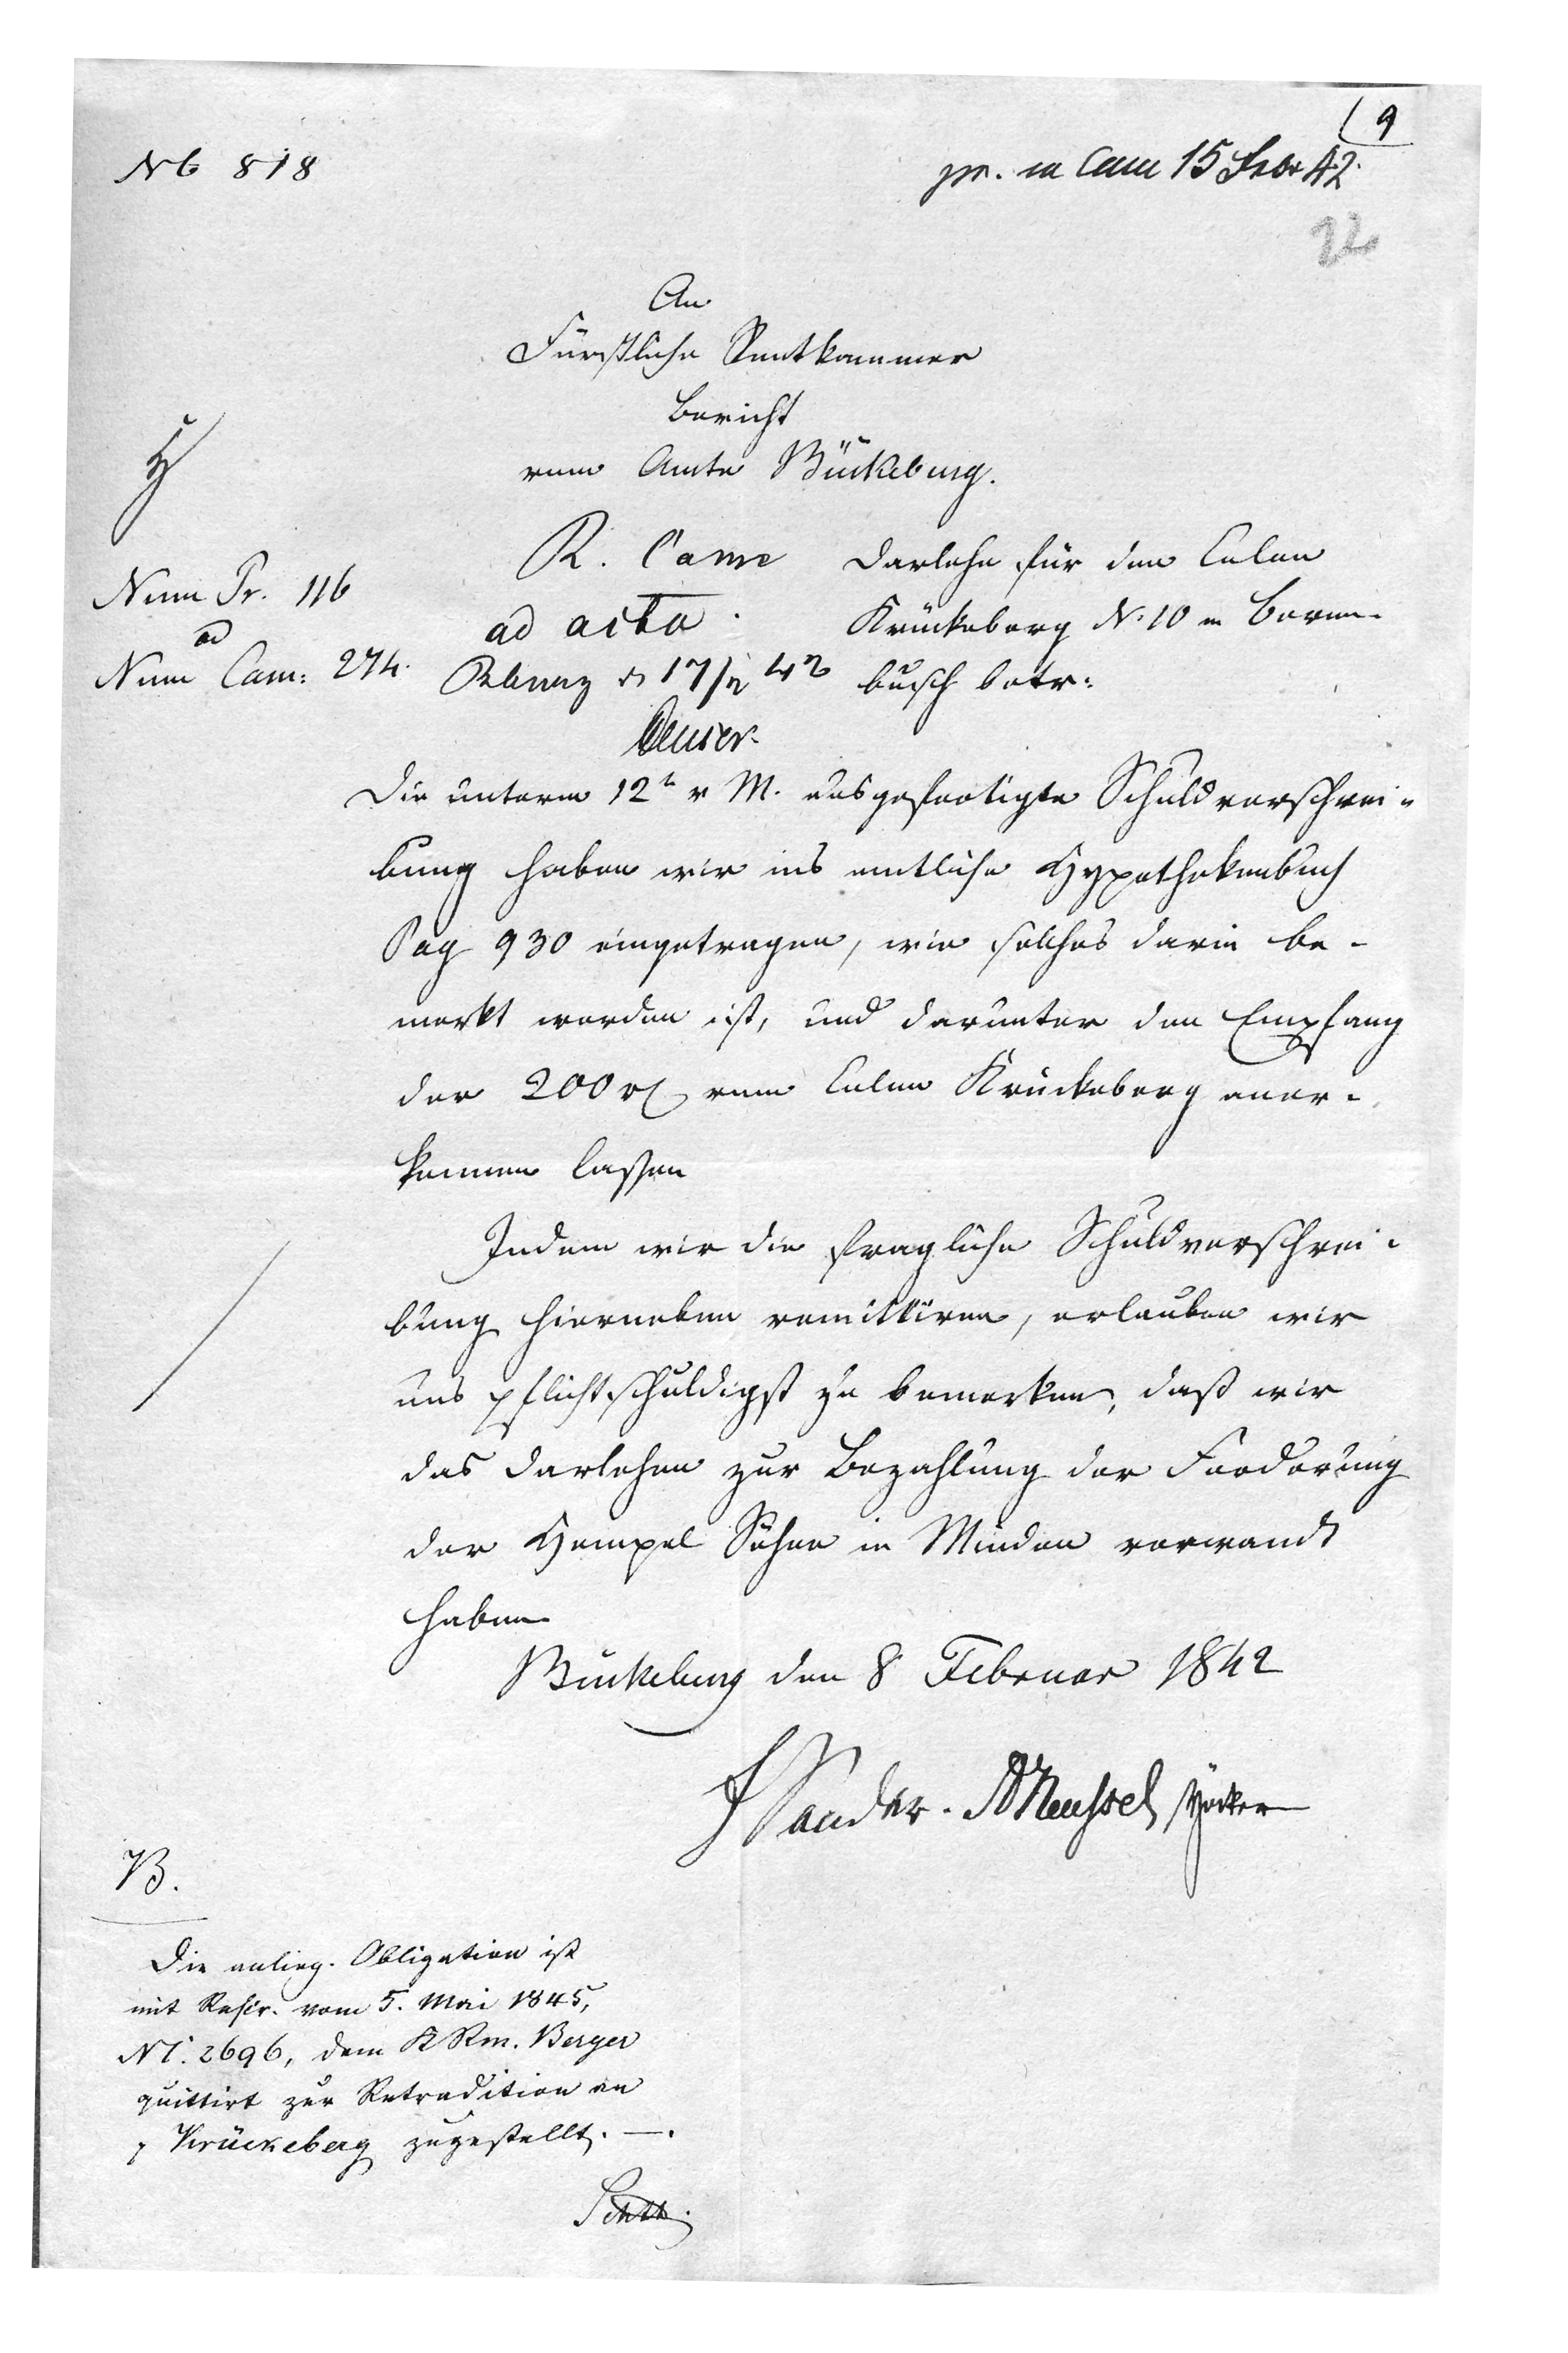 9
No 818
pr. in Cam 15 Febr 42.
22
An
Fürstliche Rentkammer
Bericht
vom Amte Bückeburg.
R. Came
Darlehn für den Colon
Num Pr. 116
ad acta.
Krückeberg N. 10 in Beren-
ad
Num Cam: 274.
17/2 42
busch betr:
Die unterm 12t v. M. ausgefertigte Schuldverschrei-
bung haben wir ins amtliche Hypothekenbuch
Pag 930 eingetragen, wie solches darin be-
merkt worden ist, und darunter den Empfang
der 200 rl vom Colon Krückeberg aner-
kennen lassen
Indem wir die fragliche Schuldverschrei-
bung hierneben remittiren, erlauben wir
uns pflichtschuldigst zu bemerken, daß wir
das Darlehen zur Bezahlung der Forderung
der Hempel Söhne in Minden verwandt
haben
Bückeburg den 8 Februar 1842
Sander.
B.
Die anlieg. Obligation ist
mit Rescr. vom 5. Mai 1845,
N. 2696, dem Berger
quittirt zur Retradition an
Krückeberg zugestellt. —.